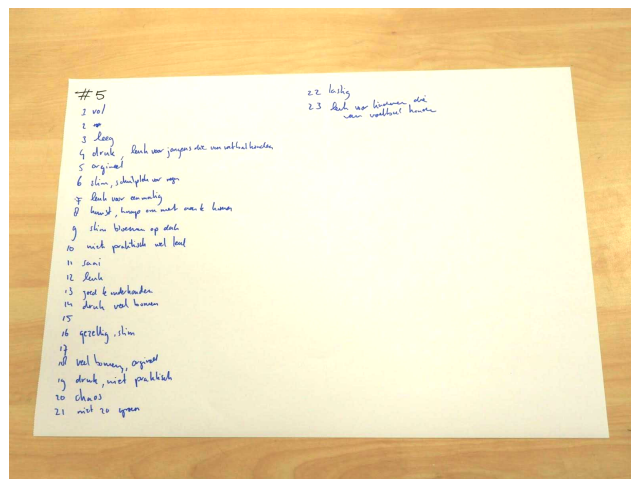 #5
1 vol
2
3 leeg
4 druk, leuk voor jongens die van voetbal houden
5 orgineel
6 slim, schuilplek voor regen
7 leuk voor eenmalig
8 kunst, hoop om met
9 slim bloemen op dak
10 niet praktisch wel leuk
11 saai
12 leuk
13 goed te onderhouden
14 druk veel bomen
15
16 gezellig, slim
17
18 veel bomen, orgineel
19 druk, niet praktisch
20 chaos
21 niet zo groen
22 lastig
23 leuk voor kinderen die
van voetbal houden